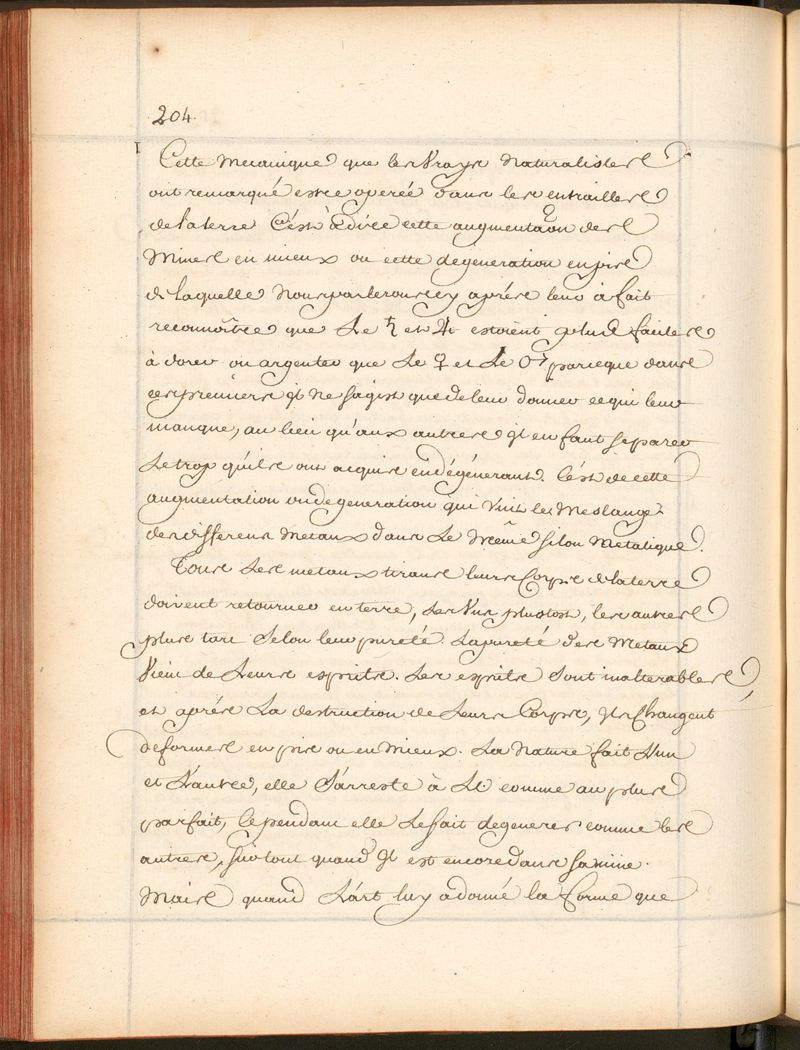 204.
Cette mecanique que les Vrays Naturalistes
ont remarqué estre operée dans les entrailles
de la terre C'est à dire cette augmentaõn des
Mines en mieux ou cette degeneration en pis
de laquelle Nous parlerons icy aprés leur à fait
reconnoître que Le ♄ et ♃ estoient plus faciles
à dorer ou argenter que Le ♀ et Le ♂ parceque dans
ces premiers jl ne sagist que de leur donner ce qui leur
manque, au lieu qu'aux autres jl en faut separer
Le trop qu'ils ont acquis en dégénerant. C'est de cette
augmentation ou degeneration qui Vint les Meslanges
des differens Metaux dans Le même filon Metalique.
Tous les metaux tirans leurs Corps de la terre
doivent retourner en terre, Les Vns plustost, les autres
plus tart Selon leur pureté. La pureté des Metaux
Vient de Leurs esprits. Les esprits Sont inalterables,
et aprés La destruction de Leurs Corps, jls Changent
de formes en pis ou en Mieux. La Nature fait L'un
et L'autre, elle S'arreste à L'☉ comme au plus
parfait, Cependant elle Le fait degenerer comme les
autres, Sur tout quand jl est encore dans sa mine.
Mais quand L'art luy a donné la forme que